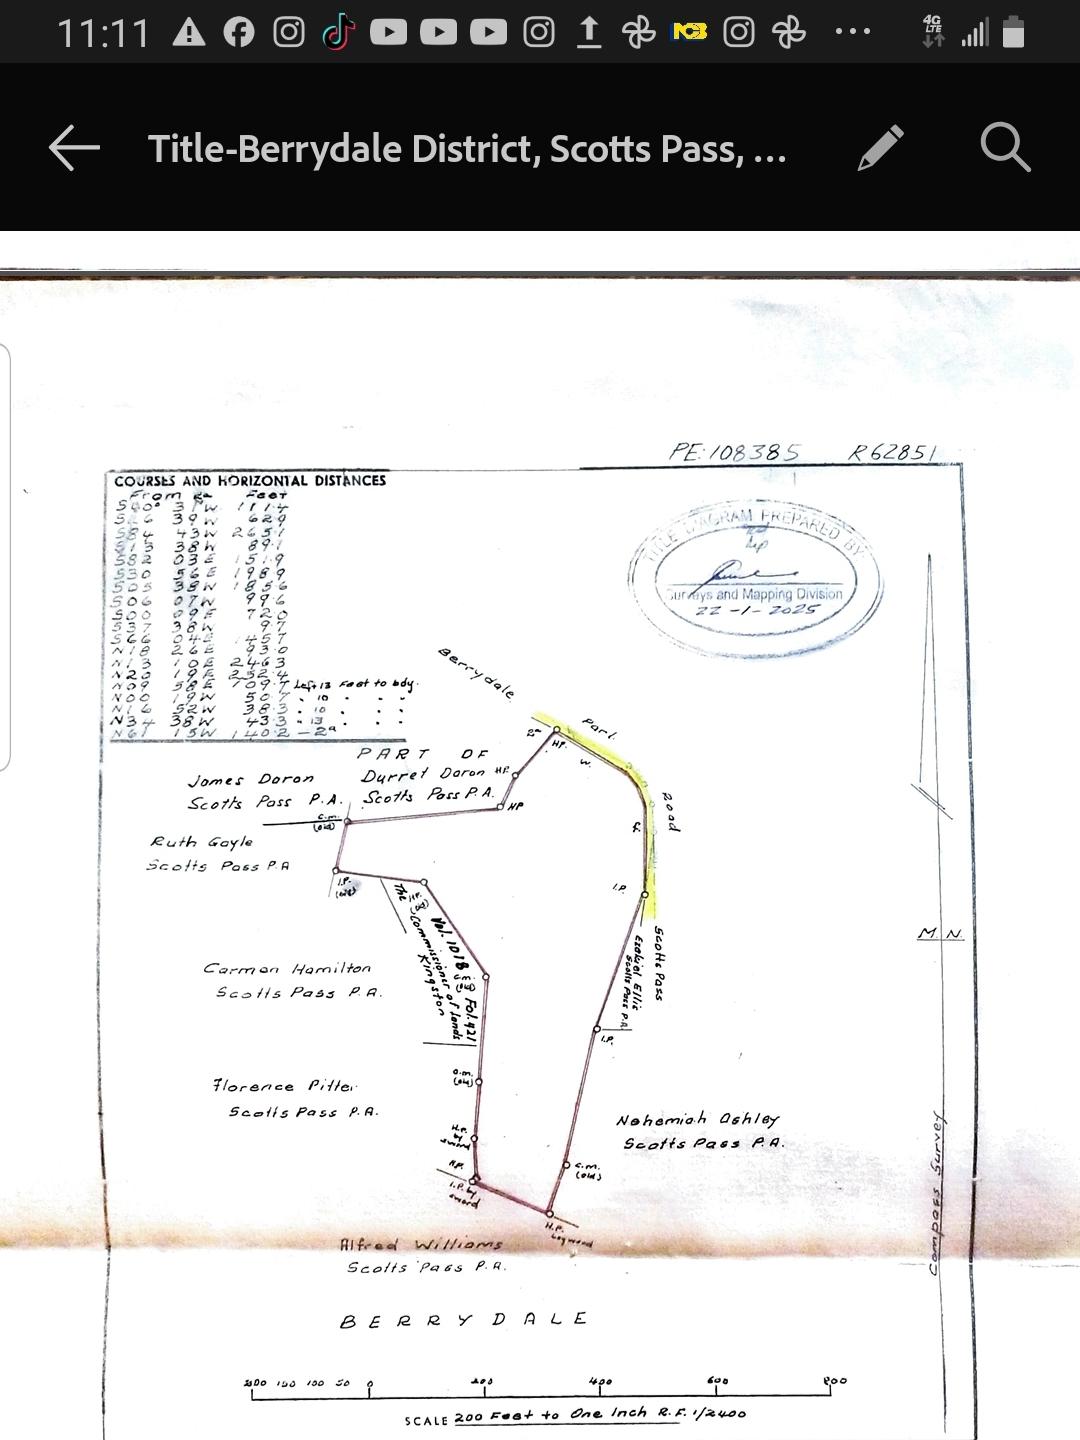 11:11
4G
LTE
Title-Berrydale District, Scotts Pass, ...
PE:108385 R62851
COURSES AND HORIZONTAL DISTANCES
From Feet
39 W 62.9
S84 43W 265.1
S15 38W 89.1
S82 03E 151.9
S30 56E 198.9
S05 38W 185.6
S06 07W 99.6
S00 09E 72.0
S37 38W 9.7
S66 04E 145.7
N18 26E 93.0
N13 10E 246.3
N20 19E 252.4
N09 58E 709.7 Left 13 Feet to bdy.
N00 19W 50.7 " 10 " "
N16 52W 38.3 " 10 " "
N34 38W 43.3 " 13 " "
N61 15W 140.2 - 2"
TITLE DIAGRAM PREPARED BY
Surveys and Mapping Division
22-1-2025
Berrydale
Part.
H.P.
W.
Road
PART OF
James Doran
Scotts Pass P.A.
Durret Doran
Scotts Pass P.A.
H.P.
H.P
C.M.
(old)
Ruth Gayle
Scotts Pass P.A
I.P.
(old)
H.P.
I.P.
The Commissioner of Lands
Kingston
Vol. 1018 Fol. 421
Scotts Pass
Ezekiel Ellis
Scotts Pass P.A.
M.N.
Carmen Hamilton
Scotts Pass P.A.
I.P.
(old)
Florence Pitter
Scotts Pass P.A.
Nehemiah Ashley
Scotts Pass P.A.
H.P.
by
sword
H.P.
I.P. by
sword
C.M.
(old)
H.P.
Logwood
Compass Survey
Alfred Williams
Scotts Pass P.A.
BERRYDALE
200 150 100 50 0 200 400 600 800
SCALE 200 Feet to One Inch R.F. 1/2400